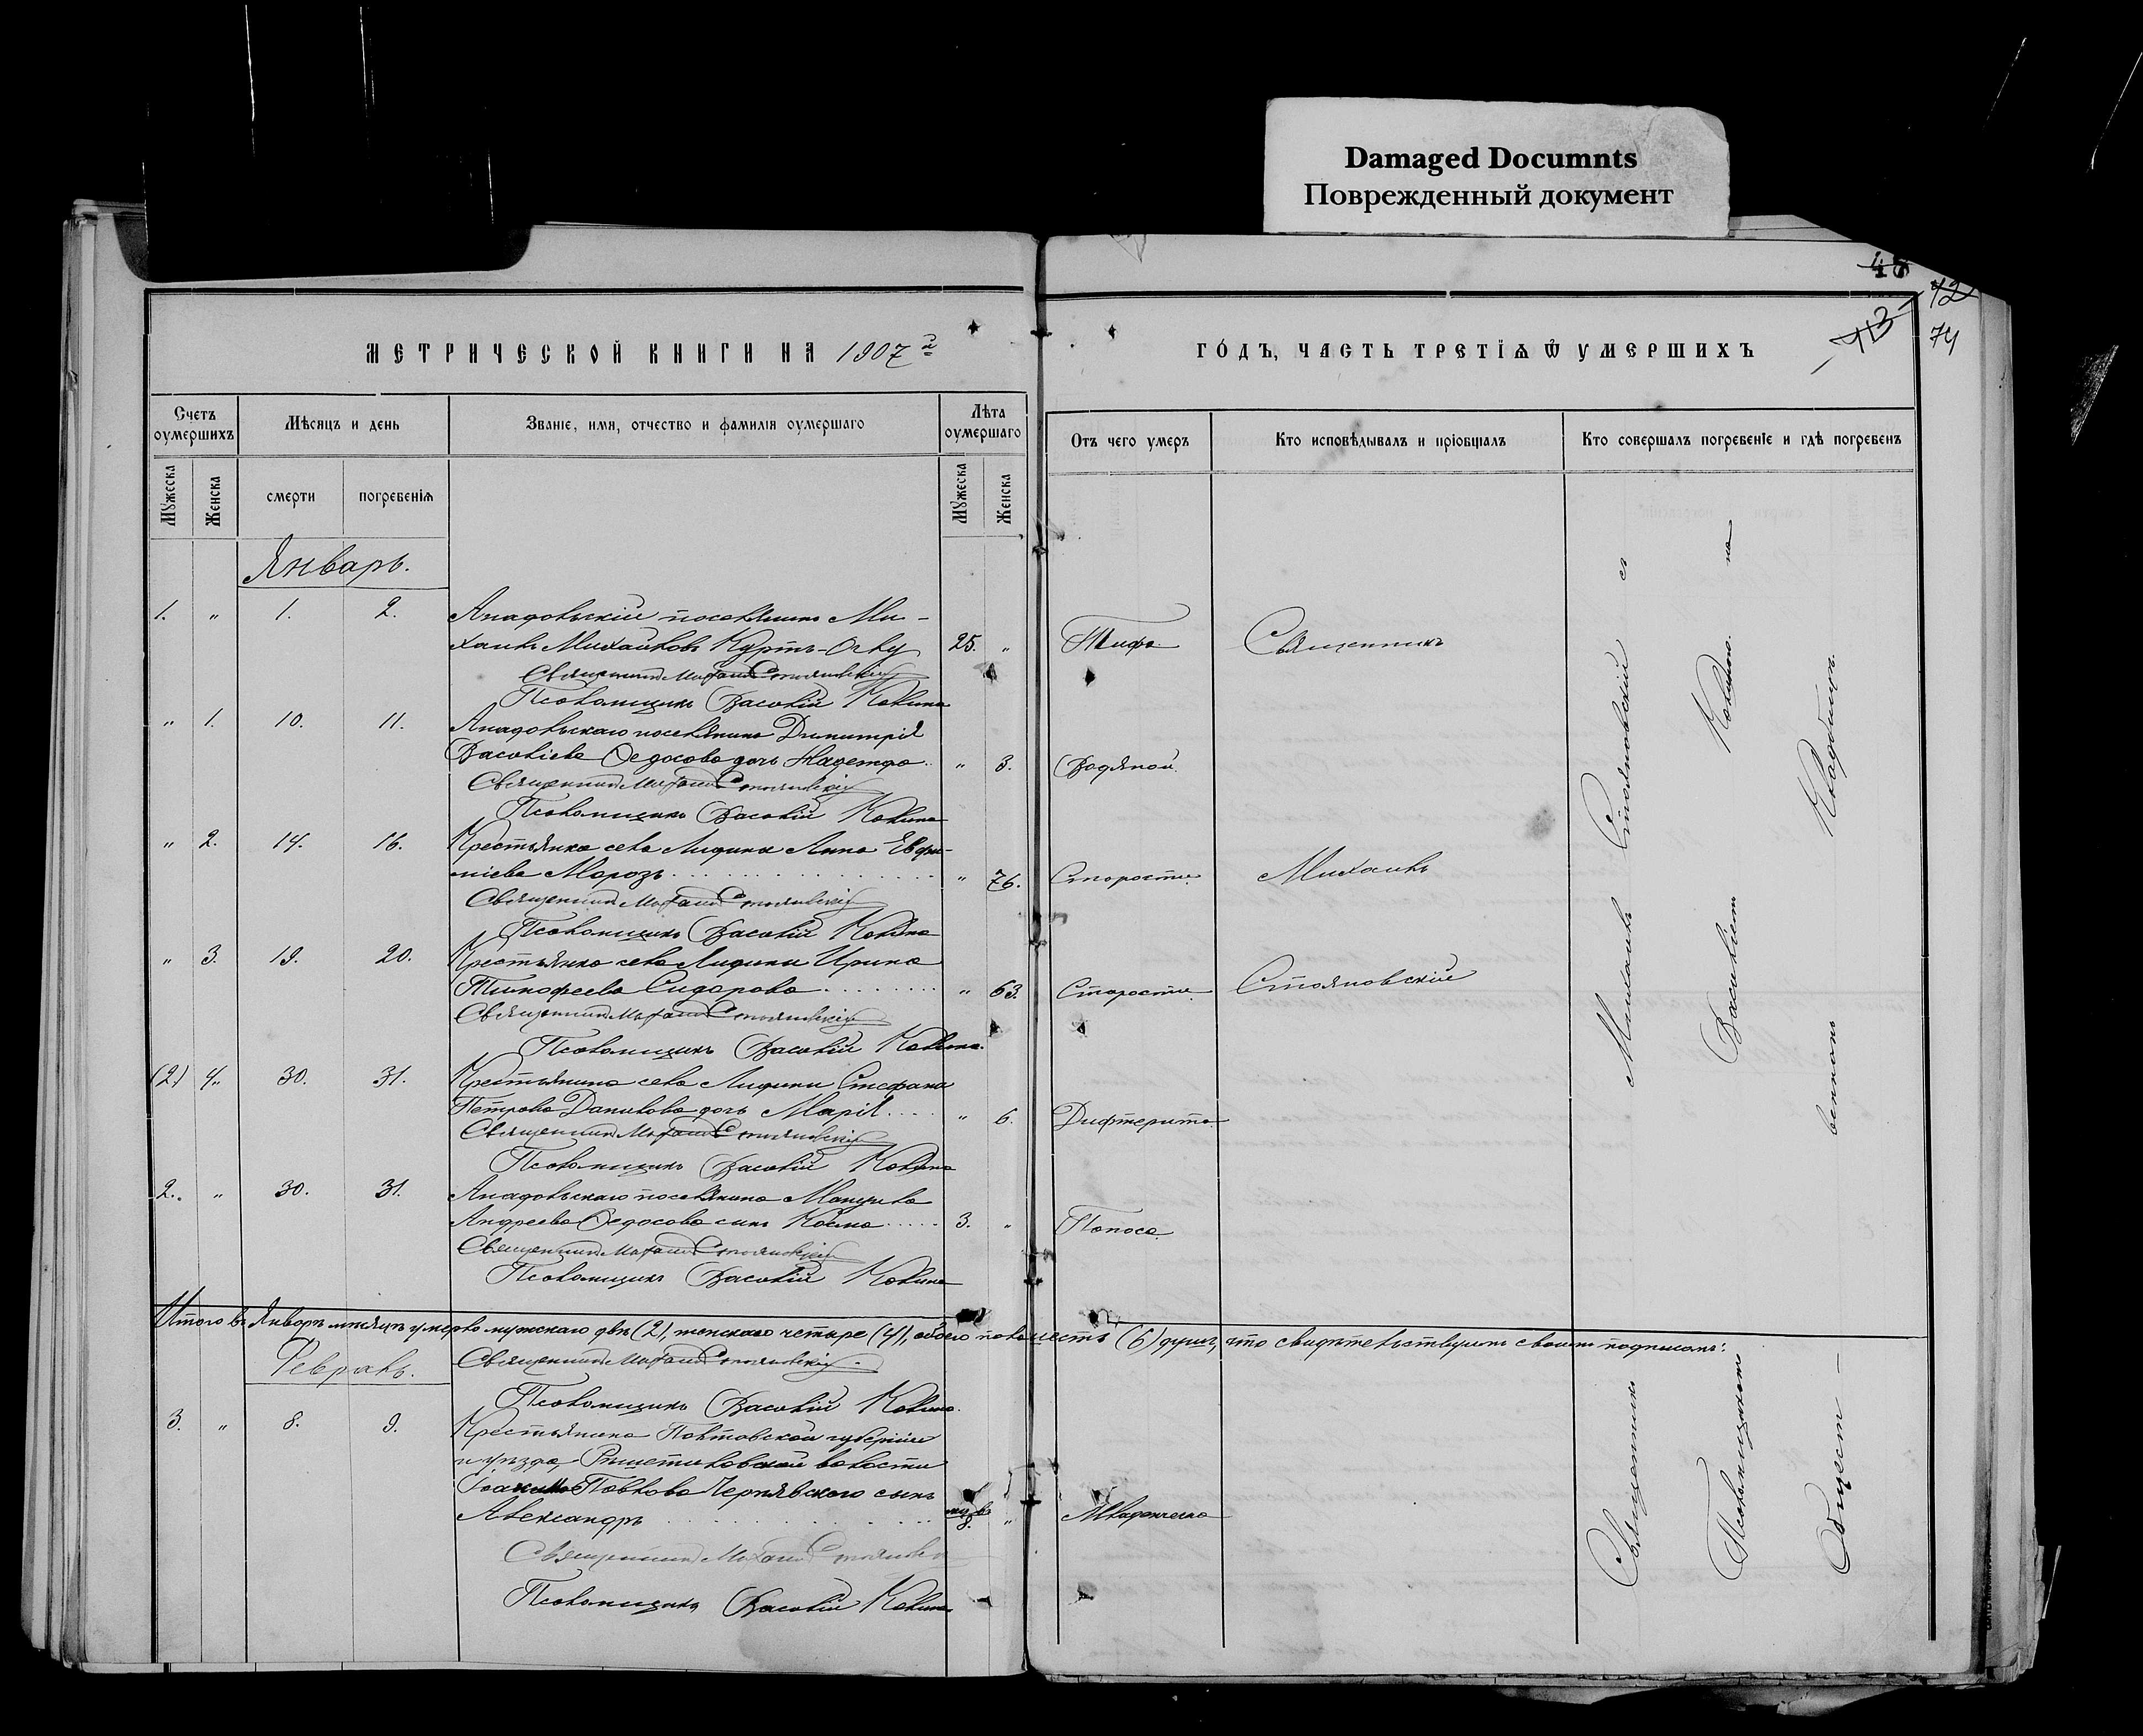 Damaged Documnts
Поврежденный документ
48
72
73
74
МЕТРИЧЕСКОЙ КНИГИ НА 1907й
ГО́ДЪ, ЧАСТЬ ТРЕТІѦ Ѿ УМЕРШИХЪ
Счетъ оумершихъ
Мѣсяцъ и день
Званіе, имя, отчество и фамилія оумершаго
Лѣта оумершаго
Отъ чего умеръ
Кто исповѣдывалъ и пріобщалъ
Кто совершалъ погребеніе и гдѣ погребенъ
Мужеска
Женска
смерти
погребенія
Мужеска
Женска
Январь.
1. " 1. 2. Анадольскій поселянинъ Ми-
хаилъ Михайловъ Куртъ-Оглу 25. " Тифа Священникъ
Священникъ Михаилъ Стояновскій
Псаломщикъ Василій
" 1. 10. 11. Анадольскаго поселянина Димитрія
Василіева Федосова дочь " 3. Водяной
Священникъ Михаилъ Стояновскій
Псаломщикъ Василій
" 2. 14. 16. Крестьянка села Анна Евфи-
міева Морозъ " 76. Старости Михаилъ
Священникъ Михаилъ Стояновскій
Псаломщикъ Василій
" 3. 19. 20. Крестьянка села Ирина
Тимофеева Сидорова " 63. Старости Стояновскій
Священникъ Михаилъ Стояновскій
Псаломщикъ Василій
(2) 4. 30. 31. Крестьянина села Стефана
Петрова Данилова дочь Марія " 6. Дифтерита
Священникъ Михаилъ Стояновскій
Псаломщикъ Василій
2. " 30. 31. Анадольскаго поселянина
Андреева Федосова сынъ Косма 3. " Поноса
Священникъ Михаилъ Стояновскій
Псаломщикъ Василій
Итого въ Январѣ мѣсяцѣ умерло мужскаго два (2), женскаго четыре (4), обоего пола шесть (6) душъ, что свидѣтельствуемъ своимъ подписомъ:
Февраль.
Священникъ Михаилъ Стояновскій
Псаломщикъ Василій
3. " 8. 9. Крестьянина Полтавской губерніи
и уѣзда, Рѣшетиловской волости
Павлова Чернявскаго сынъ
Александръ 8. " Младенческа
Священникъ Михаилъ Стояновскій
Псаломщикъ Василій
Священникъ Михаилъ Стояновскій съ
Псаломщикомъ Василіемъ на
Общест-
венномъ Кладбищѣ